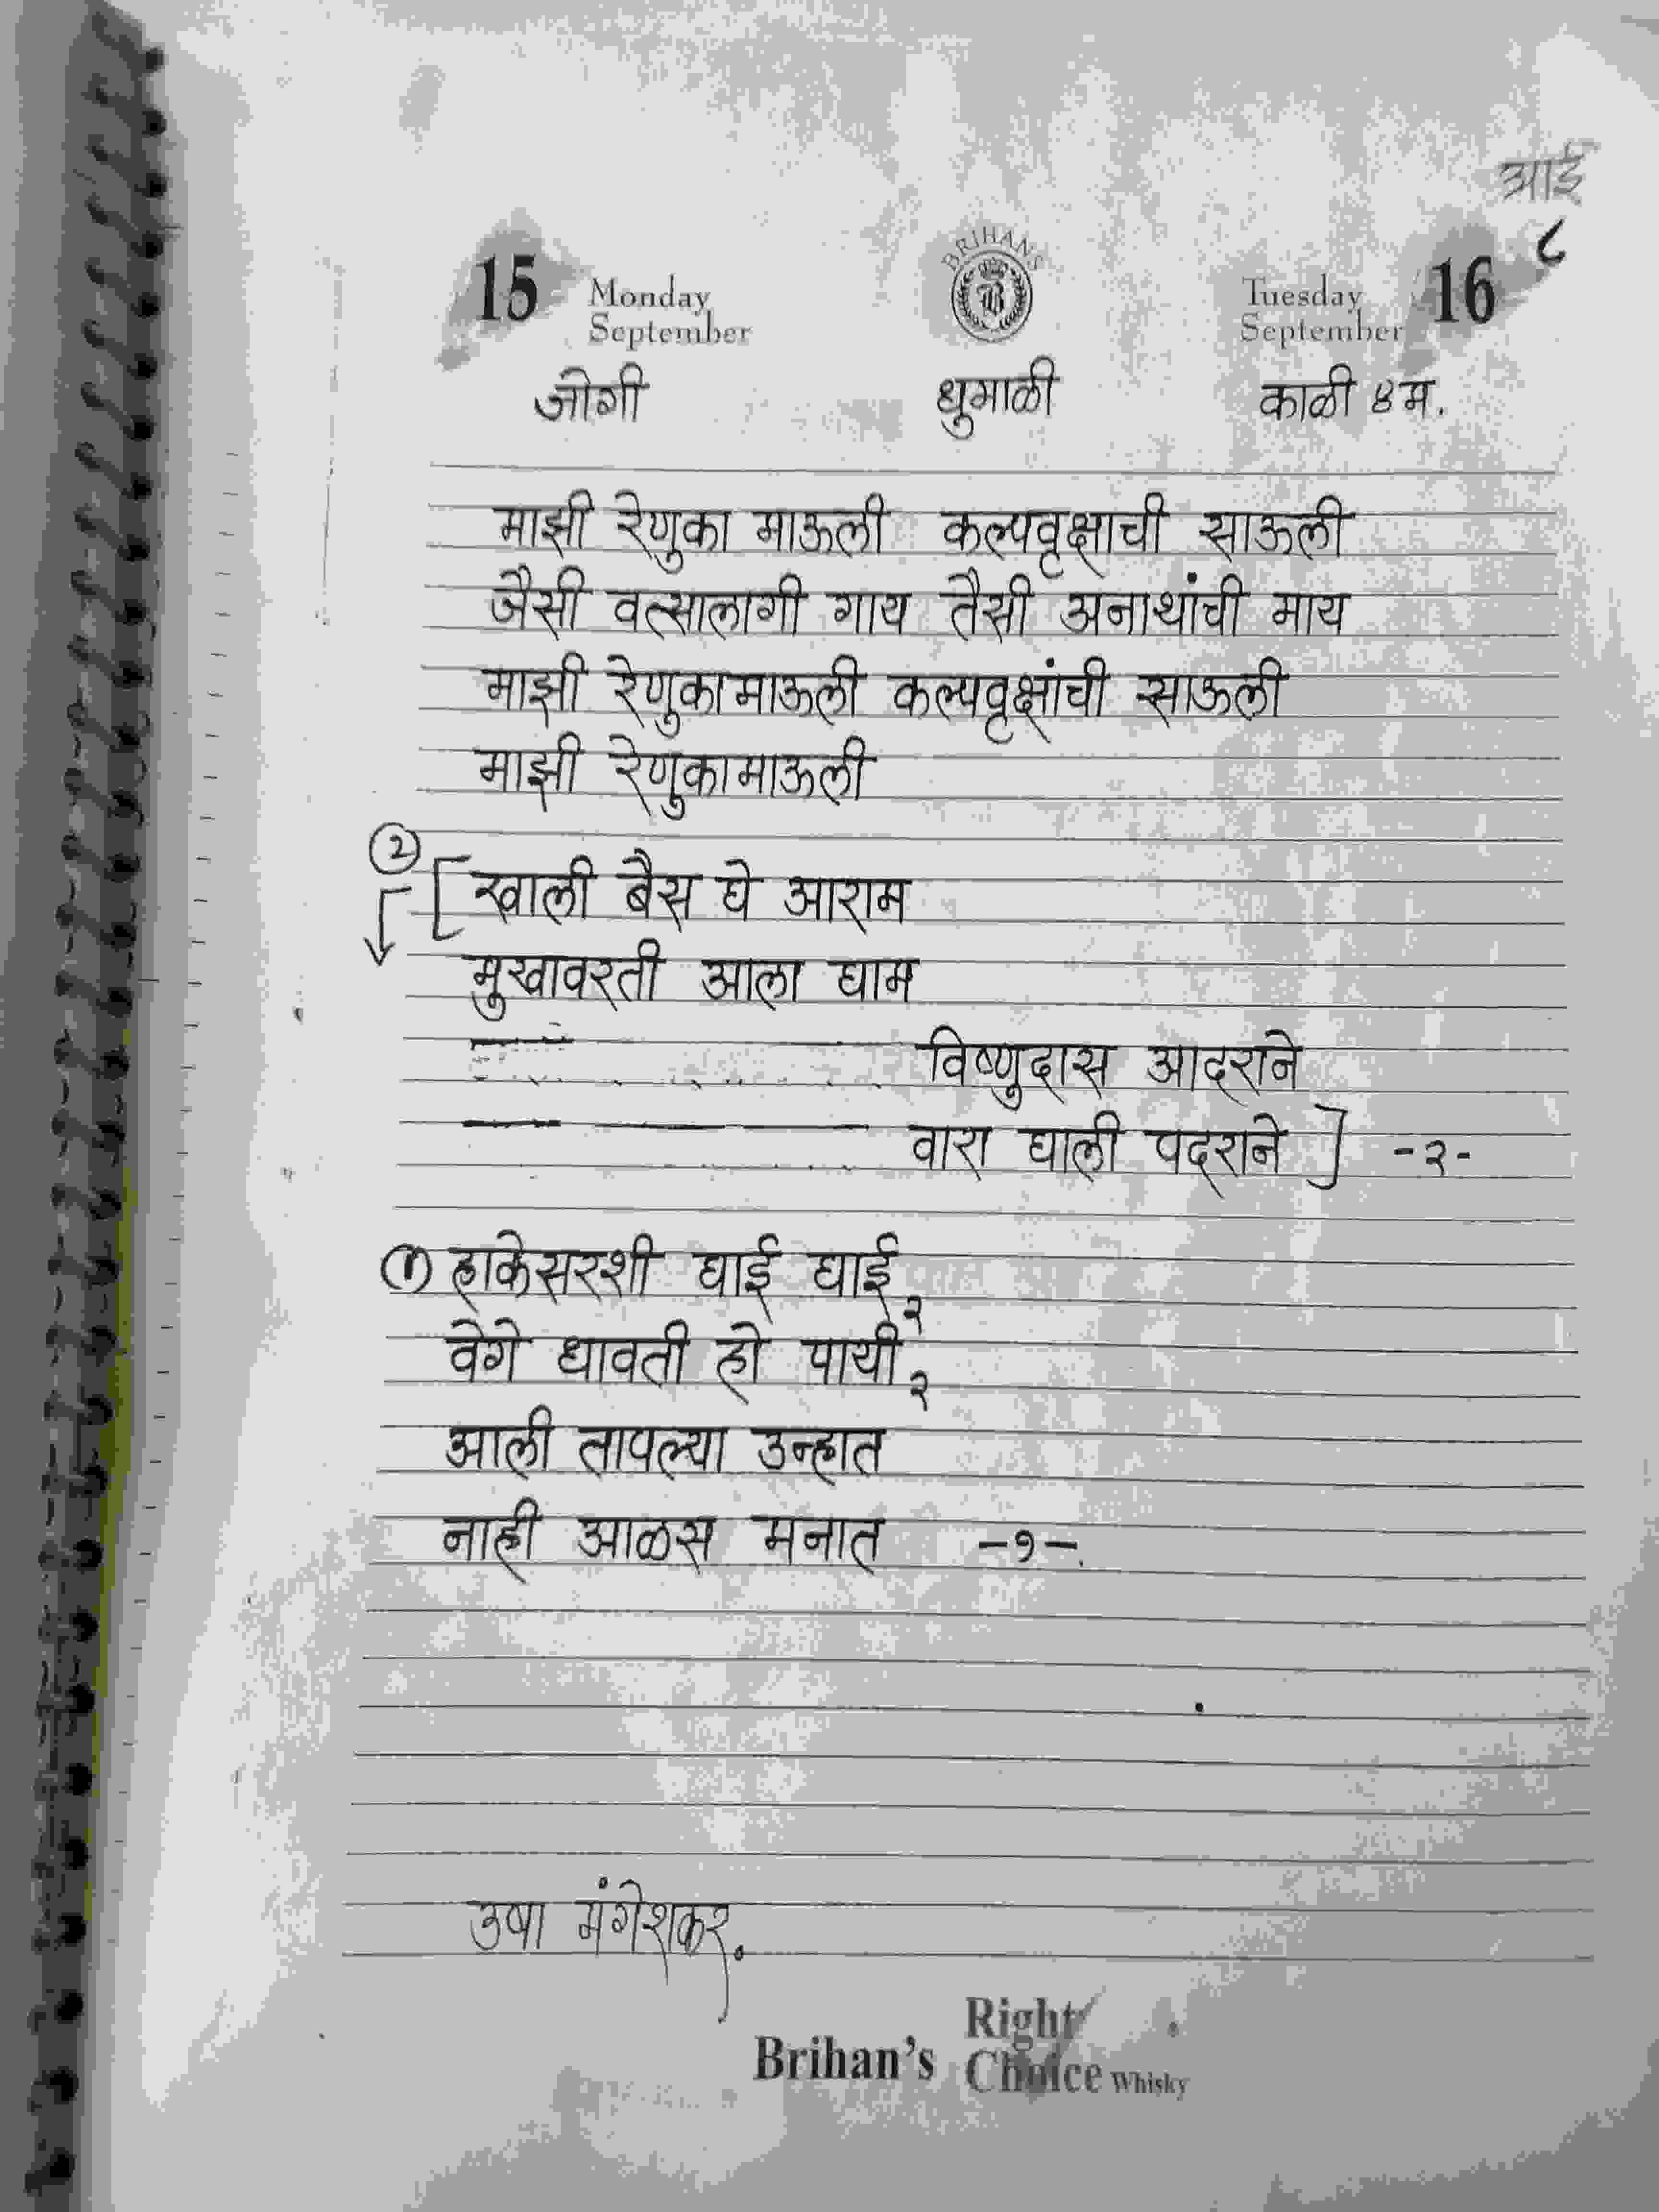 आई
८
15 Monday September
BRIHANS
B
Tuesday September 16
जोगी धुमाळी काळी ४ म.
माझी रेणुका माऊली कल्पवृक्षाची साऊली
जैसी वत्सालागी गाय तैसी अनाथांची माय
माझी रेणुकामाऊली कल्पवृक्षांची साऊली
माझी रेणुकामाऊली
② [ खाली बैस घे आराम
मुखावरती आला घाम
विष्णुदास आदराने
वारा घाली पदराने ] -२-
① हाकेसरशी घाई घाई २
वेगे धावती हो पायी २
आली तापल्या उन्हात
नाही आळस मनात -१-
उषा मंगेशकर.
Brihan's Right Choice Whisky